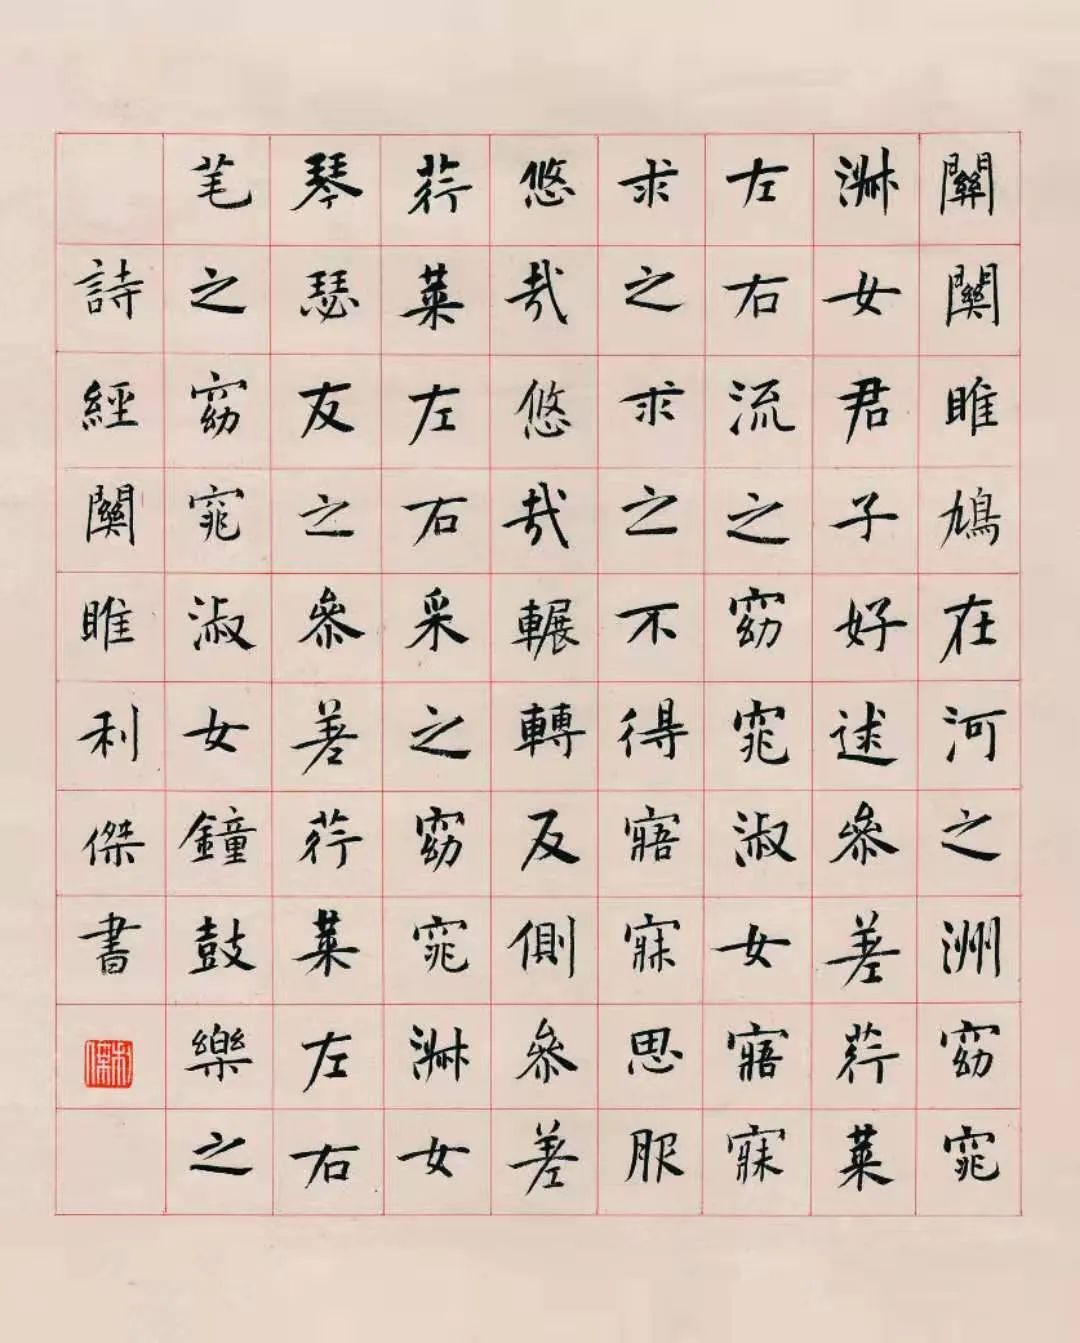 關關雎鳩在河之洲窈窕
淑女君子好逑參差荇菜
左右流之窈窕淑女寤寐
求之求之不得寤寐思服
悠哉悠哉輾轉反側參差
荇菜左右采之窈窕淑女
琴瑟友之參差荇菜左右
芼之窈窕淑女鐘鼓樂之
詩經關雎利傑書
利傑